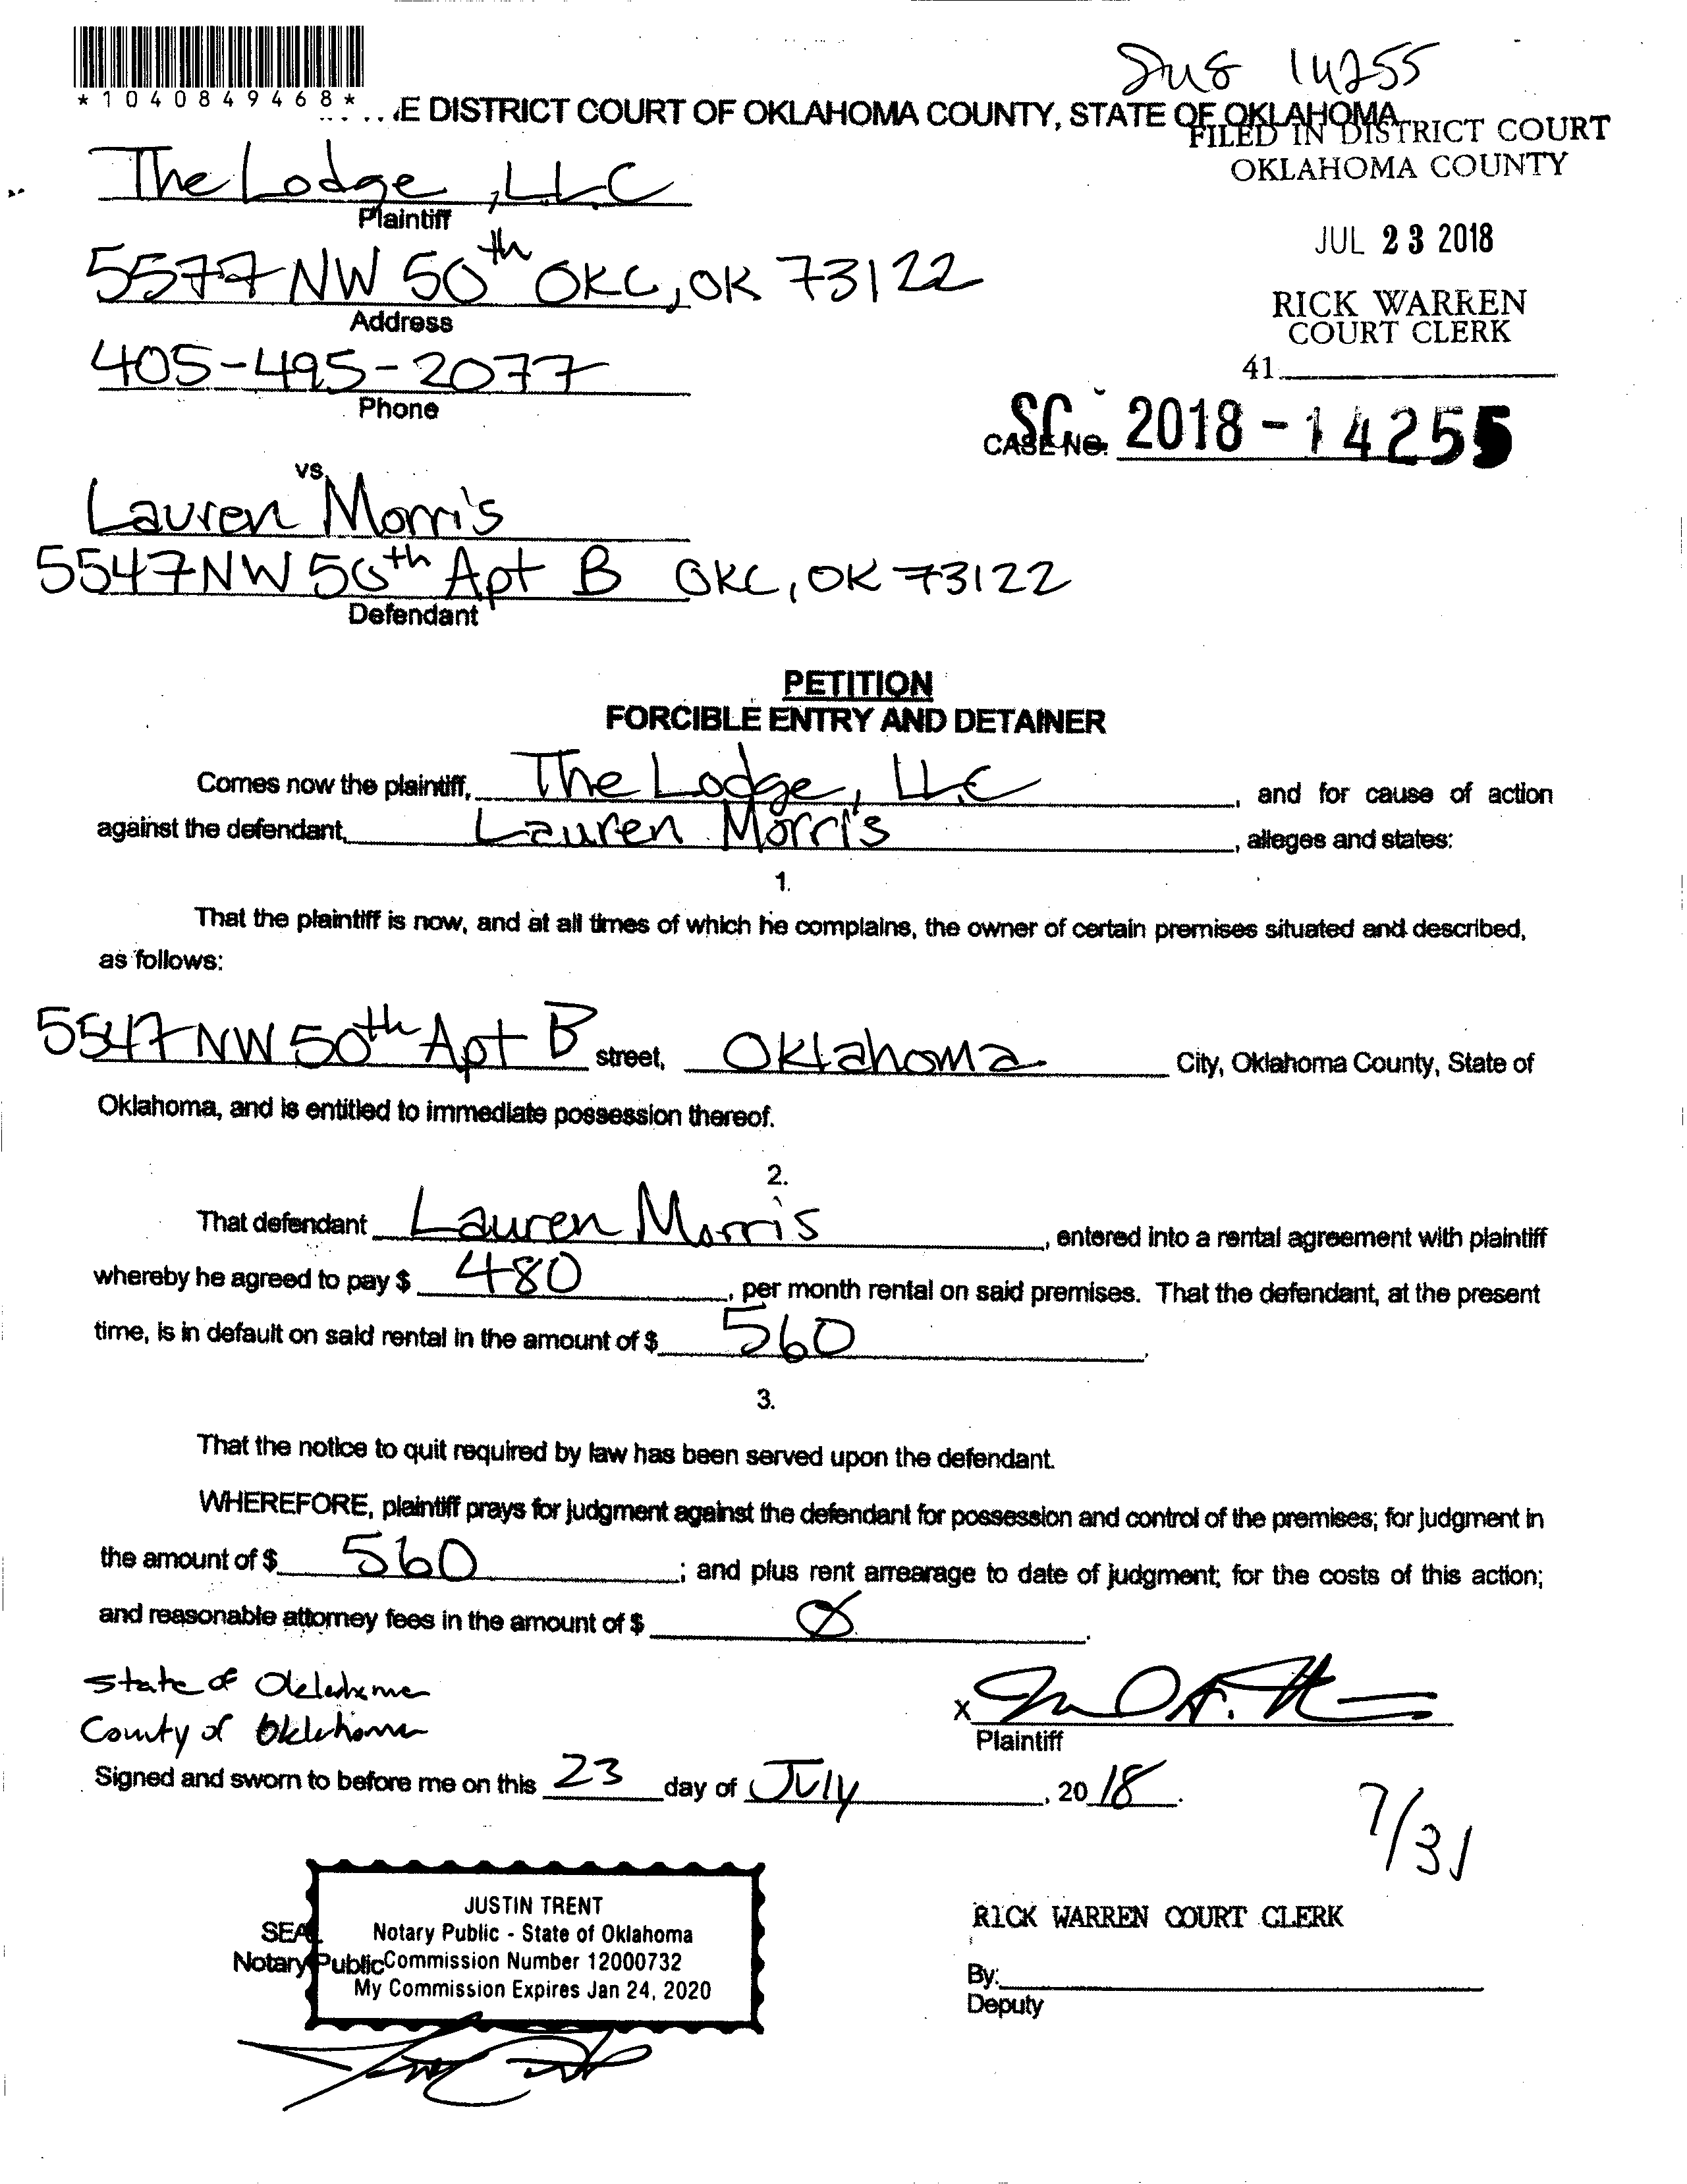 *1040849468*
14255
E DISTRICT COURT OF OKLAHOMA COUNTY, STATE OF OKLAHOMA
FILED IN DISTRICT COURT
OKLAHOMA COUNTY
The Lodge, LLC
Plaintiff
JUL 23 2018
5577 NW 50th OKC, OK 73122
Address
RICK WARREN
COURT CLERK
405-495-2077
Phone
41
CASE NO. SC 2018-14255
vs.
Lauren Morris
5547 NW 50th Apt B OKC, OK 73122
Defendant
PETITION
FORCIBLE ENTRY AND DETAINER
Comes now the plaintiff, The Lodge, LLC, and for cause of action
against the defendant, Lauren Morris, alleges and states:
1.
That the plaintiff is now, and at all times of which he complains, the owner of certain premises situated and described,
as follows:
5547 NW 50th Apt B street, Oklahoma City, Oklahoma County, State of
Oklahoma, and is entitled to immediate possession thereof.
2.
That defendant Lauren Morris, entered into a rental agreement with plaintiff
whereby he agreed to pay $ 480, per month rental on said premises. That the defendant, at the present
time, is in default on said rental in the amount of $ 560.
3.
That the notice to quit required by law has been served upon the defendant.
WHEREFORE, plaintiff prays for judgment against the defendant for possession and control of the premises; for judgment in
the amount of $ 560; and plus rent arrearage to date of judgment; for the costs of this action;
and reasonable attorney fees in the amount of $ Ø.
State of Oklahoma
County of Oklahoma
X
Plaintiff
Signed and sworn to before me on this 23 day of July, 2018.
7/31
JUSTIN TRENT
Notary Public - State of Oklahoma
Commission Number 12000732
My Commission Expires Jan 24, 2020
SEAL
Notary Public
RICK WARREN COURT CLERK
By:
Deputy